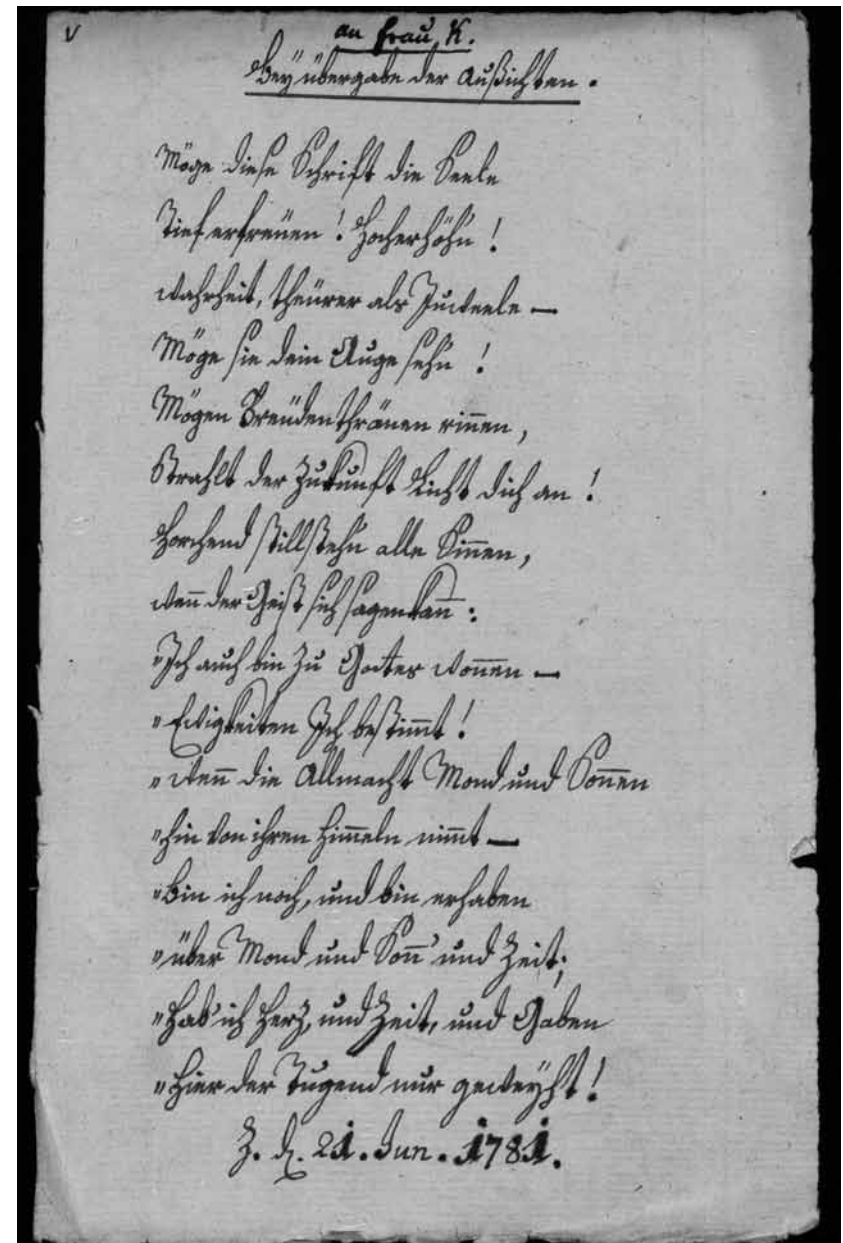 v
an Frau, K.
Bey übergabe der Außichten.
Möge diese Schrift die Seele
Tief erfreüen! Hocherhöhn!
Wahrheit, theürer als Juweele —
Möge sie dein Auge sehn!
Mögen Freüdenthränen riñen,
Strahlt der Zukunft Licht dich an!
Horchend stillstehn alle Siñen,
weñ der Geist sich sagen kañ:
"Ich auch bin zu Gottes Woñen —
"Ewigkeiten Ich bestim̅t!
"Weñ die Allmacht Mond und Soñen
"Hin von ihren Him̅eln nim̅t —
"Bin ich noch, und bin erhaben
"über Mond und Soñ' und Zeit;
"Hab' ich Herz, und Zeit, und Gaben
"Hier der Tugend nur geweyht!
Z. d. 21. Jun. 1781.